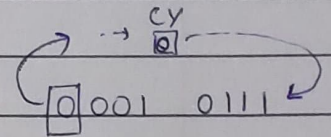 CY
0
0001 0111